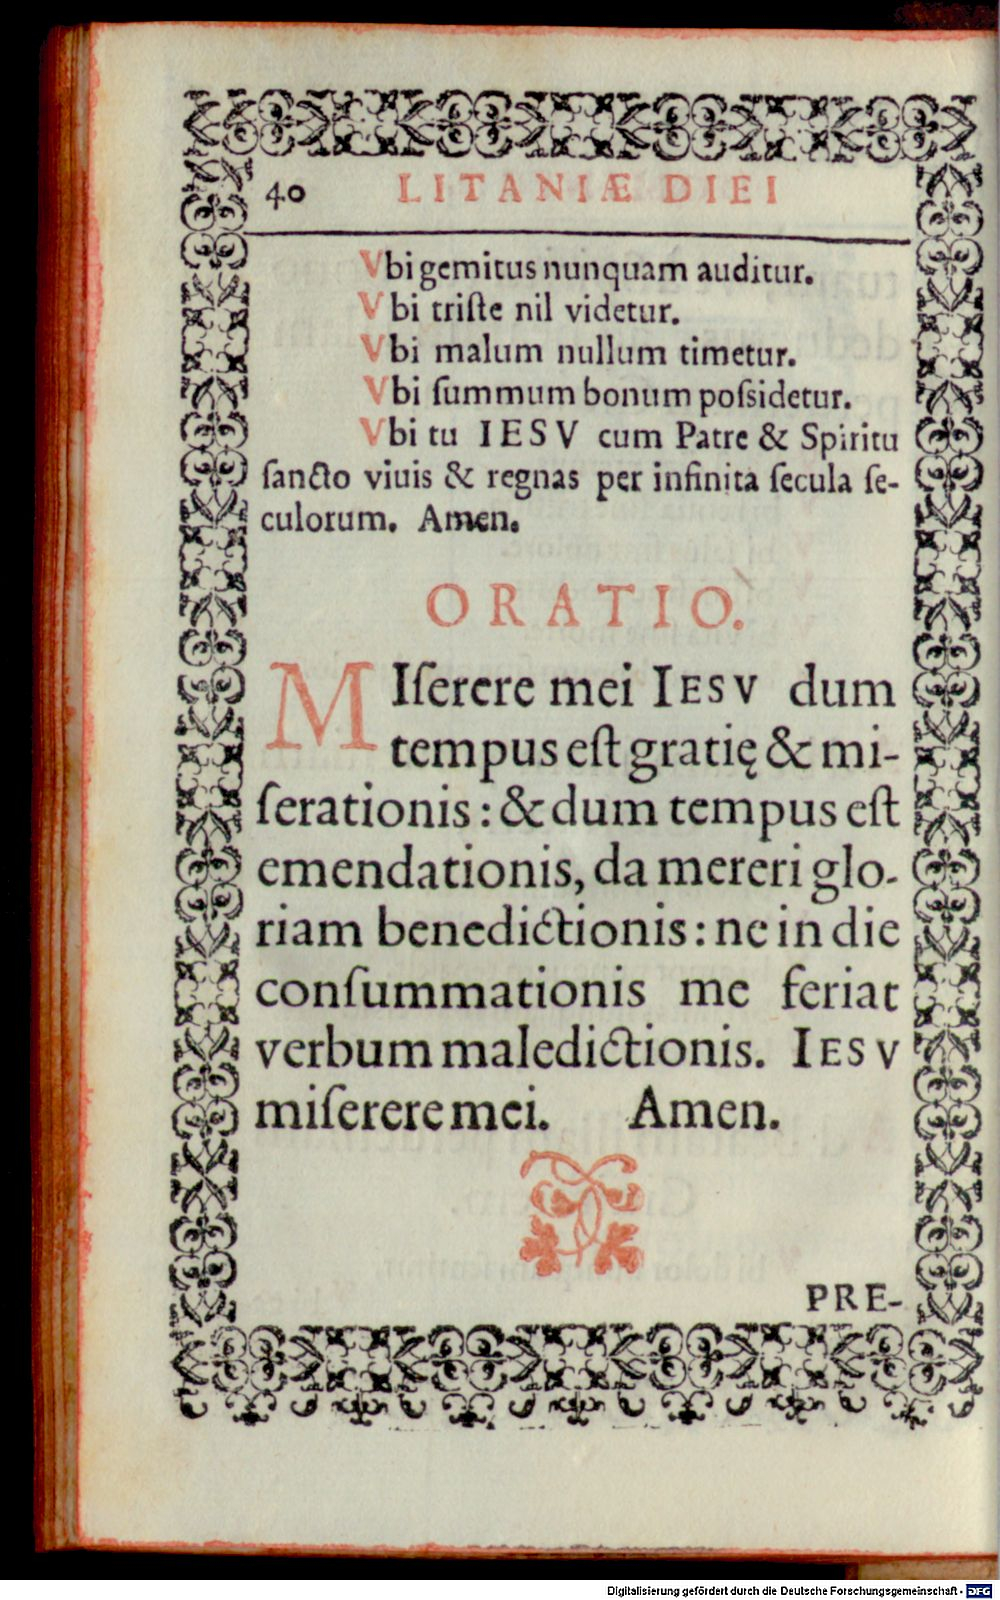 40 LITANIÆ DIEI
Vbi gemitus nunquam auditur.
Vbi triſte nil videtur.
Vbi malum nullum timetur.
Vbi ſummum bonum poſsidetur.
Vbi tu IESV cum Patre & Spiritu
ſancto viuis & regnas per infinita ſecula ſe-
culorum. Amen.
ORATIO.
MIſerere mei IESV dum
tempus eſt gratię & mi-
ſerationis: & dum tempus eſt
emendationis, da mereri glo-
riam benedictionis: ne in die
conſummationis me feriat
verbum maledictionis. IESV
miſerere mei. Amen.
PRE-
Digitalisierung gefördert durch die Deutsche Forschungsgemeinschaft - DFG